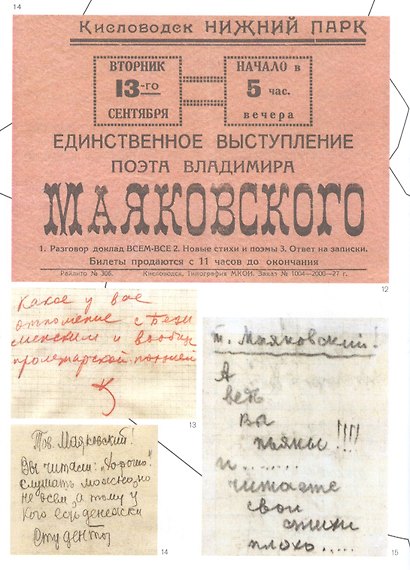 14
Кисловодск НИЖНИЙ ПАРК
ВТОРНИК
13-го
СЕНТЯБРЯ
НАЧАЛО в
5 час.
вечера
ЕДИНСТВЕННОЕ ВЫСТУПЛЕНИЕ
ПОЭТА ВЛАДИМИРА
МАЯКОВСКОГО
1. Разговор доклад ВСЕМ-ВСЕ 2. Новые стихи и поэмы 3. Ответ на записки.
Билеты продаются с 11 часов до окончания
Райлито № 306. Кисловодск, Типография МКОИ. Заказ № 1004—2000—27 г.
12
Какое у вас
отношение с Безы
менским и вообще
пролетарской поэзией
13
Тов. Маяковский!
Вы читали: „Хорошо"
слушать можно но
не всем, а тому у
кого есть денежки
Студенты
14
т. Маяковский!
А
ведь
вы
пьяны!!!!
и.......
читаете
свои
стихи
плохо.....
15